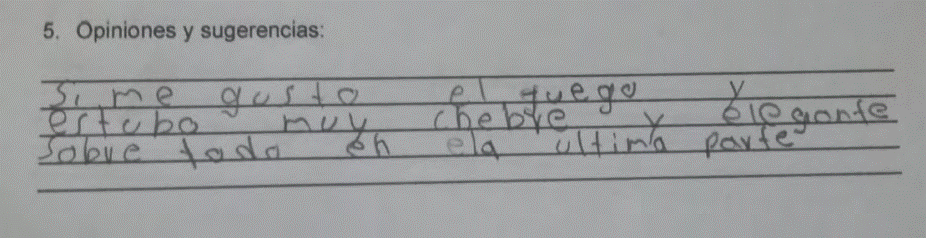 5. Opiniones y sugerencias:
Si me gusto el juego y
estubo muy chebre y elegante
sobre todo en ela ultima parte